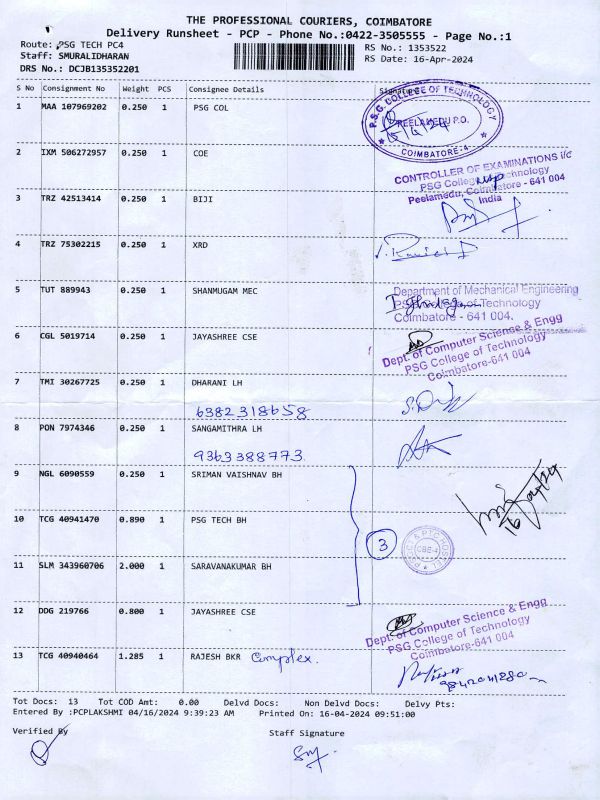 THE PROFESSIONAL COURIERS, COIMBATORE
Delivery Runsheet - PCP - Phone No.:0422-3505555 - Page No.:1
Route: PSG TECH PC4
RS No.: 1353522
Staff: SMURALIDHARAN
RS Date: 16-Apr-2024
DRS No.: DCJB135352201
S No Consignment No Weight PCS Consignee Details Signature
1 MAA 107969202 0.250 1 PSG COL
P.S.G. COLLEGE OF TECHNOLOGY
PEELAMEDU P.O.
COIMBATORE-4
2 IXM 506272957 0.250 1 COE
CONTROLLER OF EXAMINATIONS i/c
PSG College of Technology
Peelamedu, Coimbatore - 641 004
India
3 TRZ 42513414 0.250 1 BIJI
4 TRZ 75302215 0.250 1 XRD
5 TUT 889943 0.250 1 SHANMUGAM MEC
Department of Mechanical Engineering
PSG College of Technology
Coimbatore - 641 004.
6 CGL 5019714 0.250 1 JAYASHREE CSE
Dept. of Computer Science & Engg
PSG College of Technology
Coimbatore-641 004
7 TMI 30267725 0.250 1 DHARANI LH
6382318658
8 PON 7974346 0.250 1 SANGAMITHRA LH
9363388773
9 NGL 6090559 0.250 1 SRIMAN VAISHNAV BH
10 TCG 40941470 0.890 1 PSG TECH BH
3
11 SLM 343960706 2.000 1 SARAVANAKUMAR BH
12 DDG 219766 0.800 1 JAYASHREE CSE
Dept. of Computer Science & Engg
PSG College of Technology
Coimbatore-641 004
13 TCG 40940464 1.285 1 RAJESH BKR Complex.
Tot Docs: 13 Tot COD Amt: 0.00 Delvd Docs: Non Delvd Docs: Delvy Pts:
Entered By :PCPLAKSHMI 04/16/2024 9:39:23 AM Printed On: 16-04-2024 09:51:00
Verified By Staff Signature